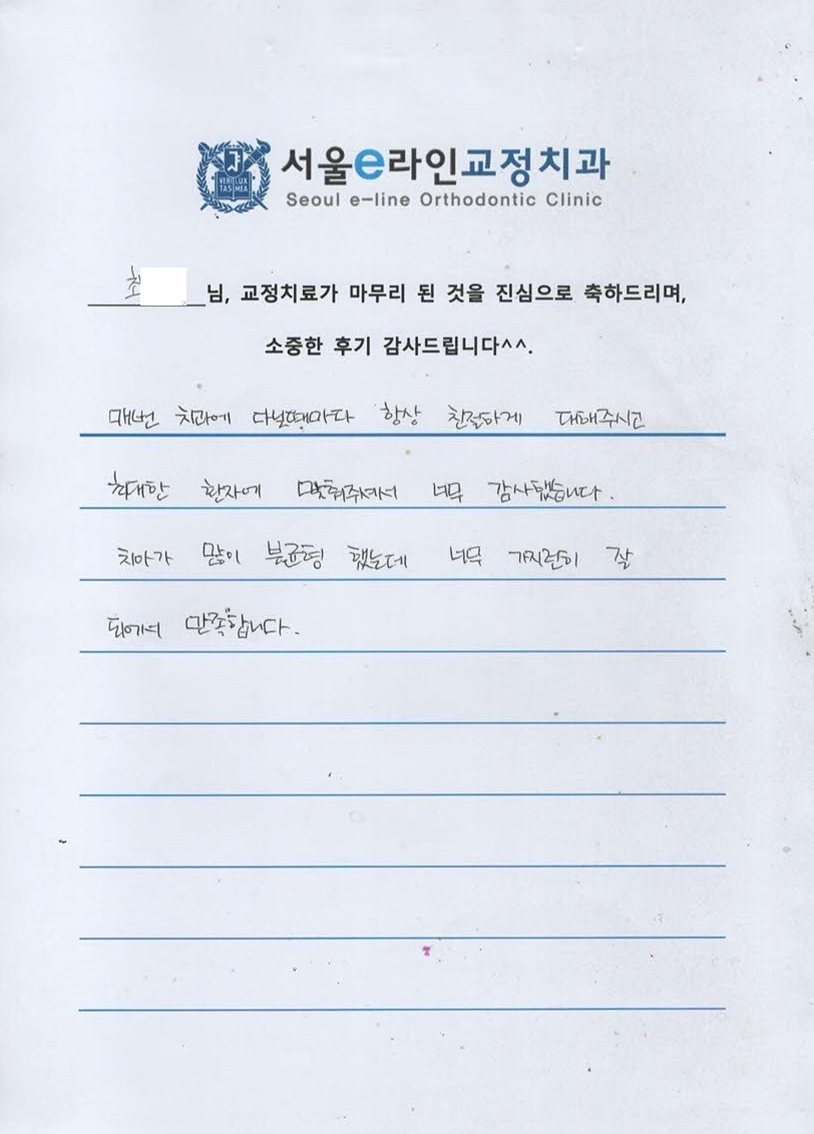 서울e라인교정치과
Seoul e-line Orthodontic Clinic
VERI LUX
TAS MEA
최 님, 교정치료가 마무리 된 것을 진심으로 축하드리며,
소중한 후기 감사드립니다^^.
매번 치과에 다닐때마다 항상 친절하게 대해주시고
최대한 환자에 맞춰주셔서 너무 감사했습니다.
치아가 많이 불균형 했는데 너무 가지런히 잘
되어서 만족합니다.